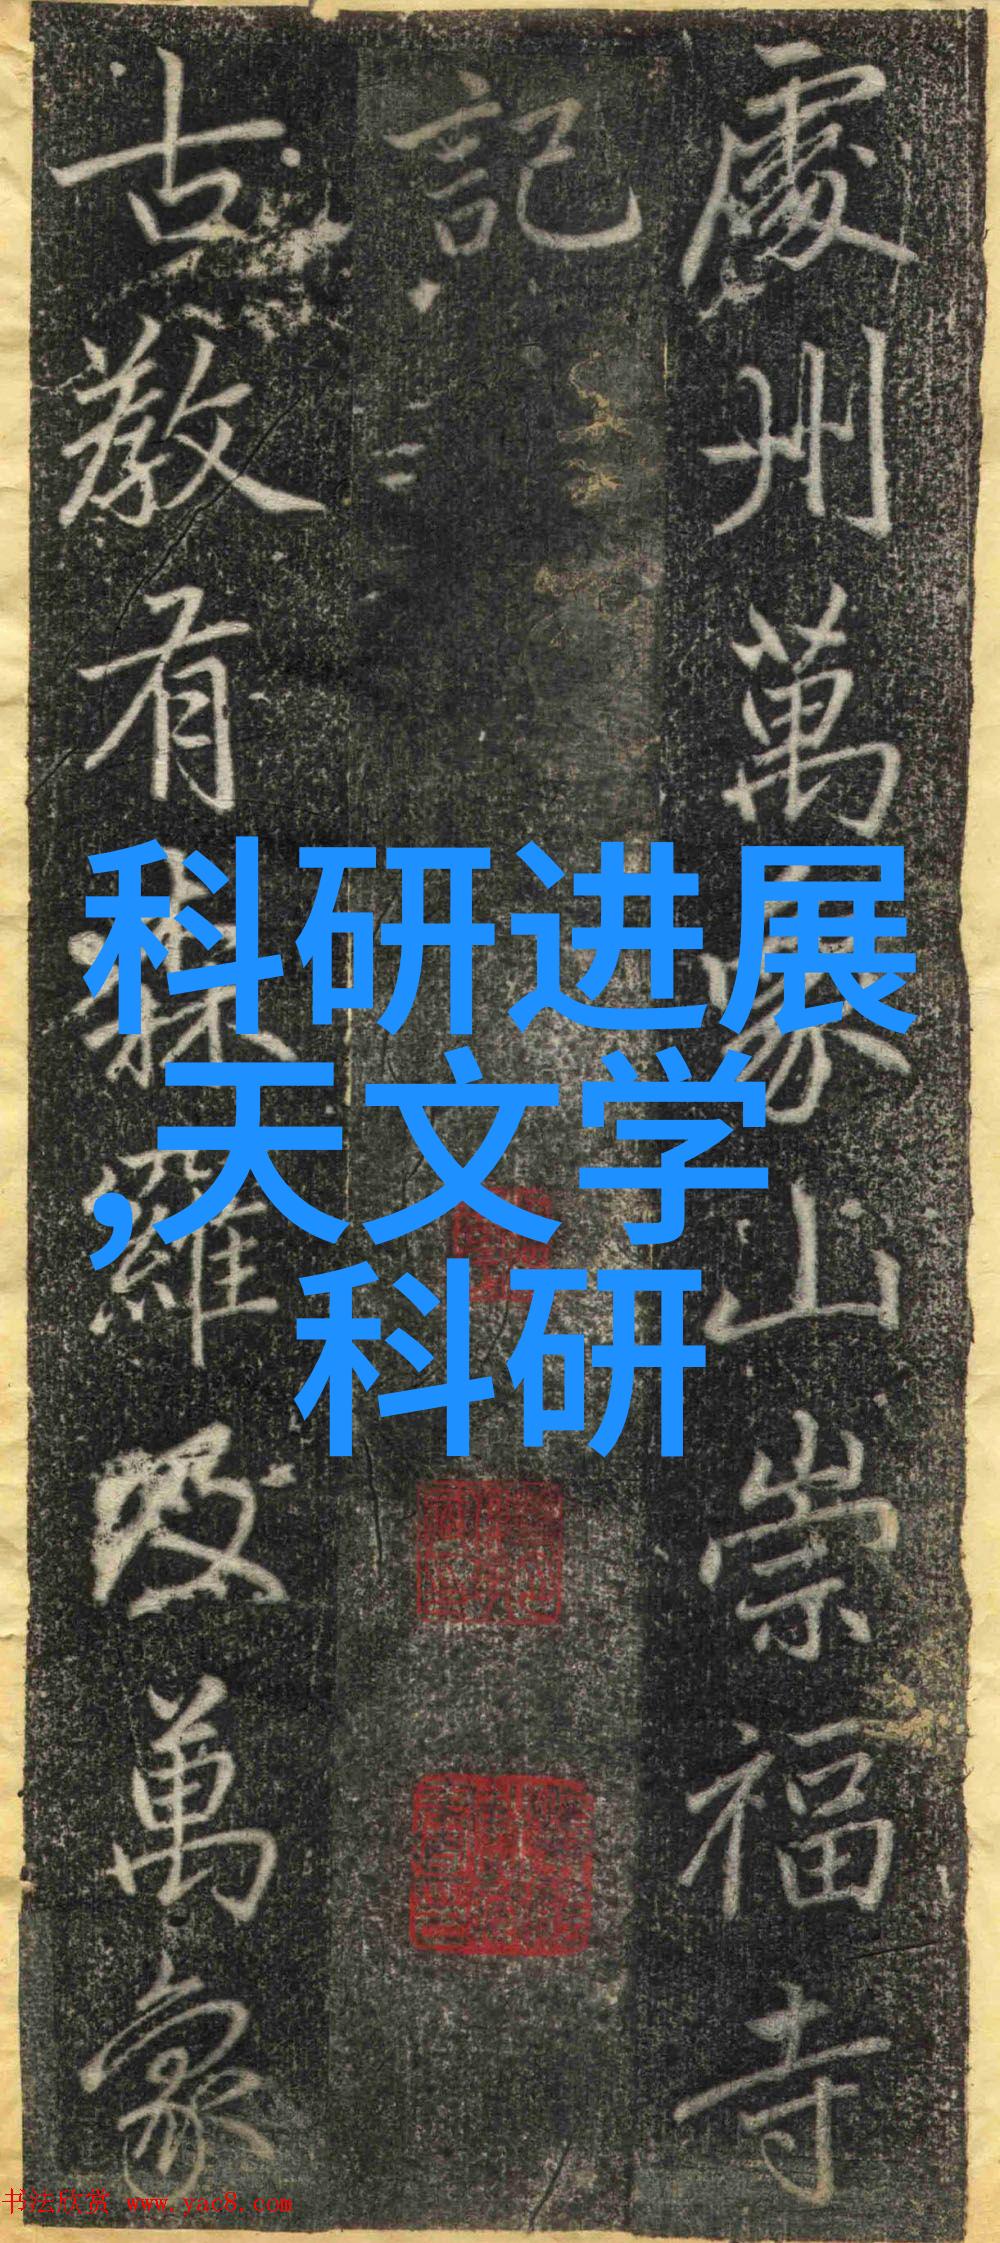 處州萬象山崇福寺
記
古教有森羅及萬象
科研进展
,天文学
科研
书法欣赏 www.yac8.com